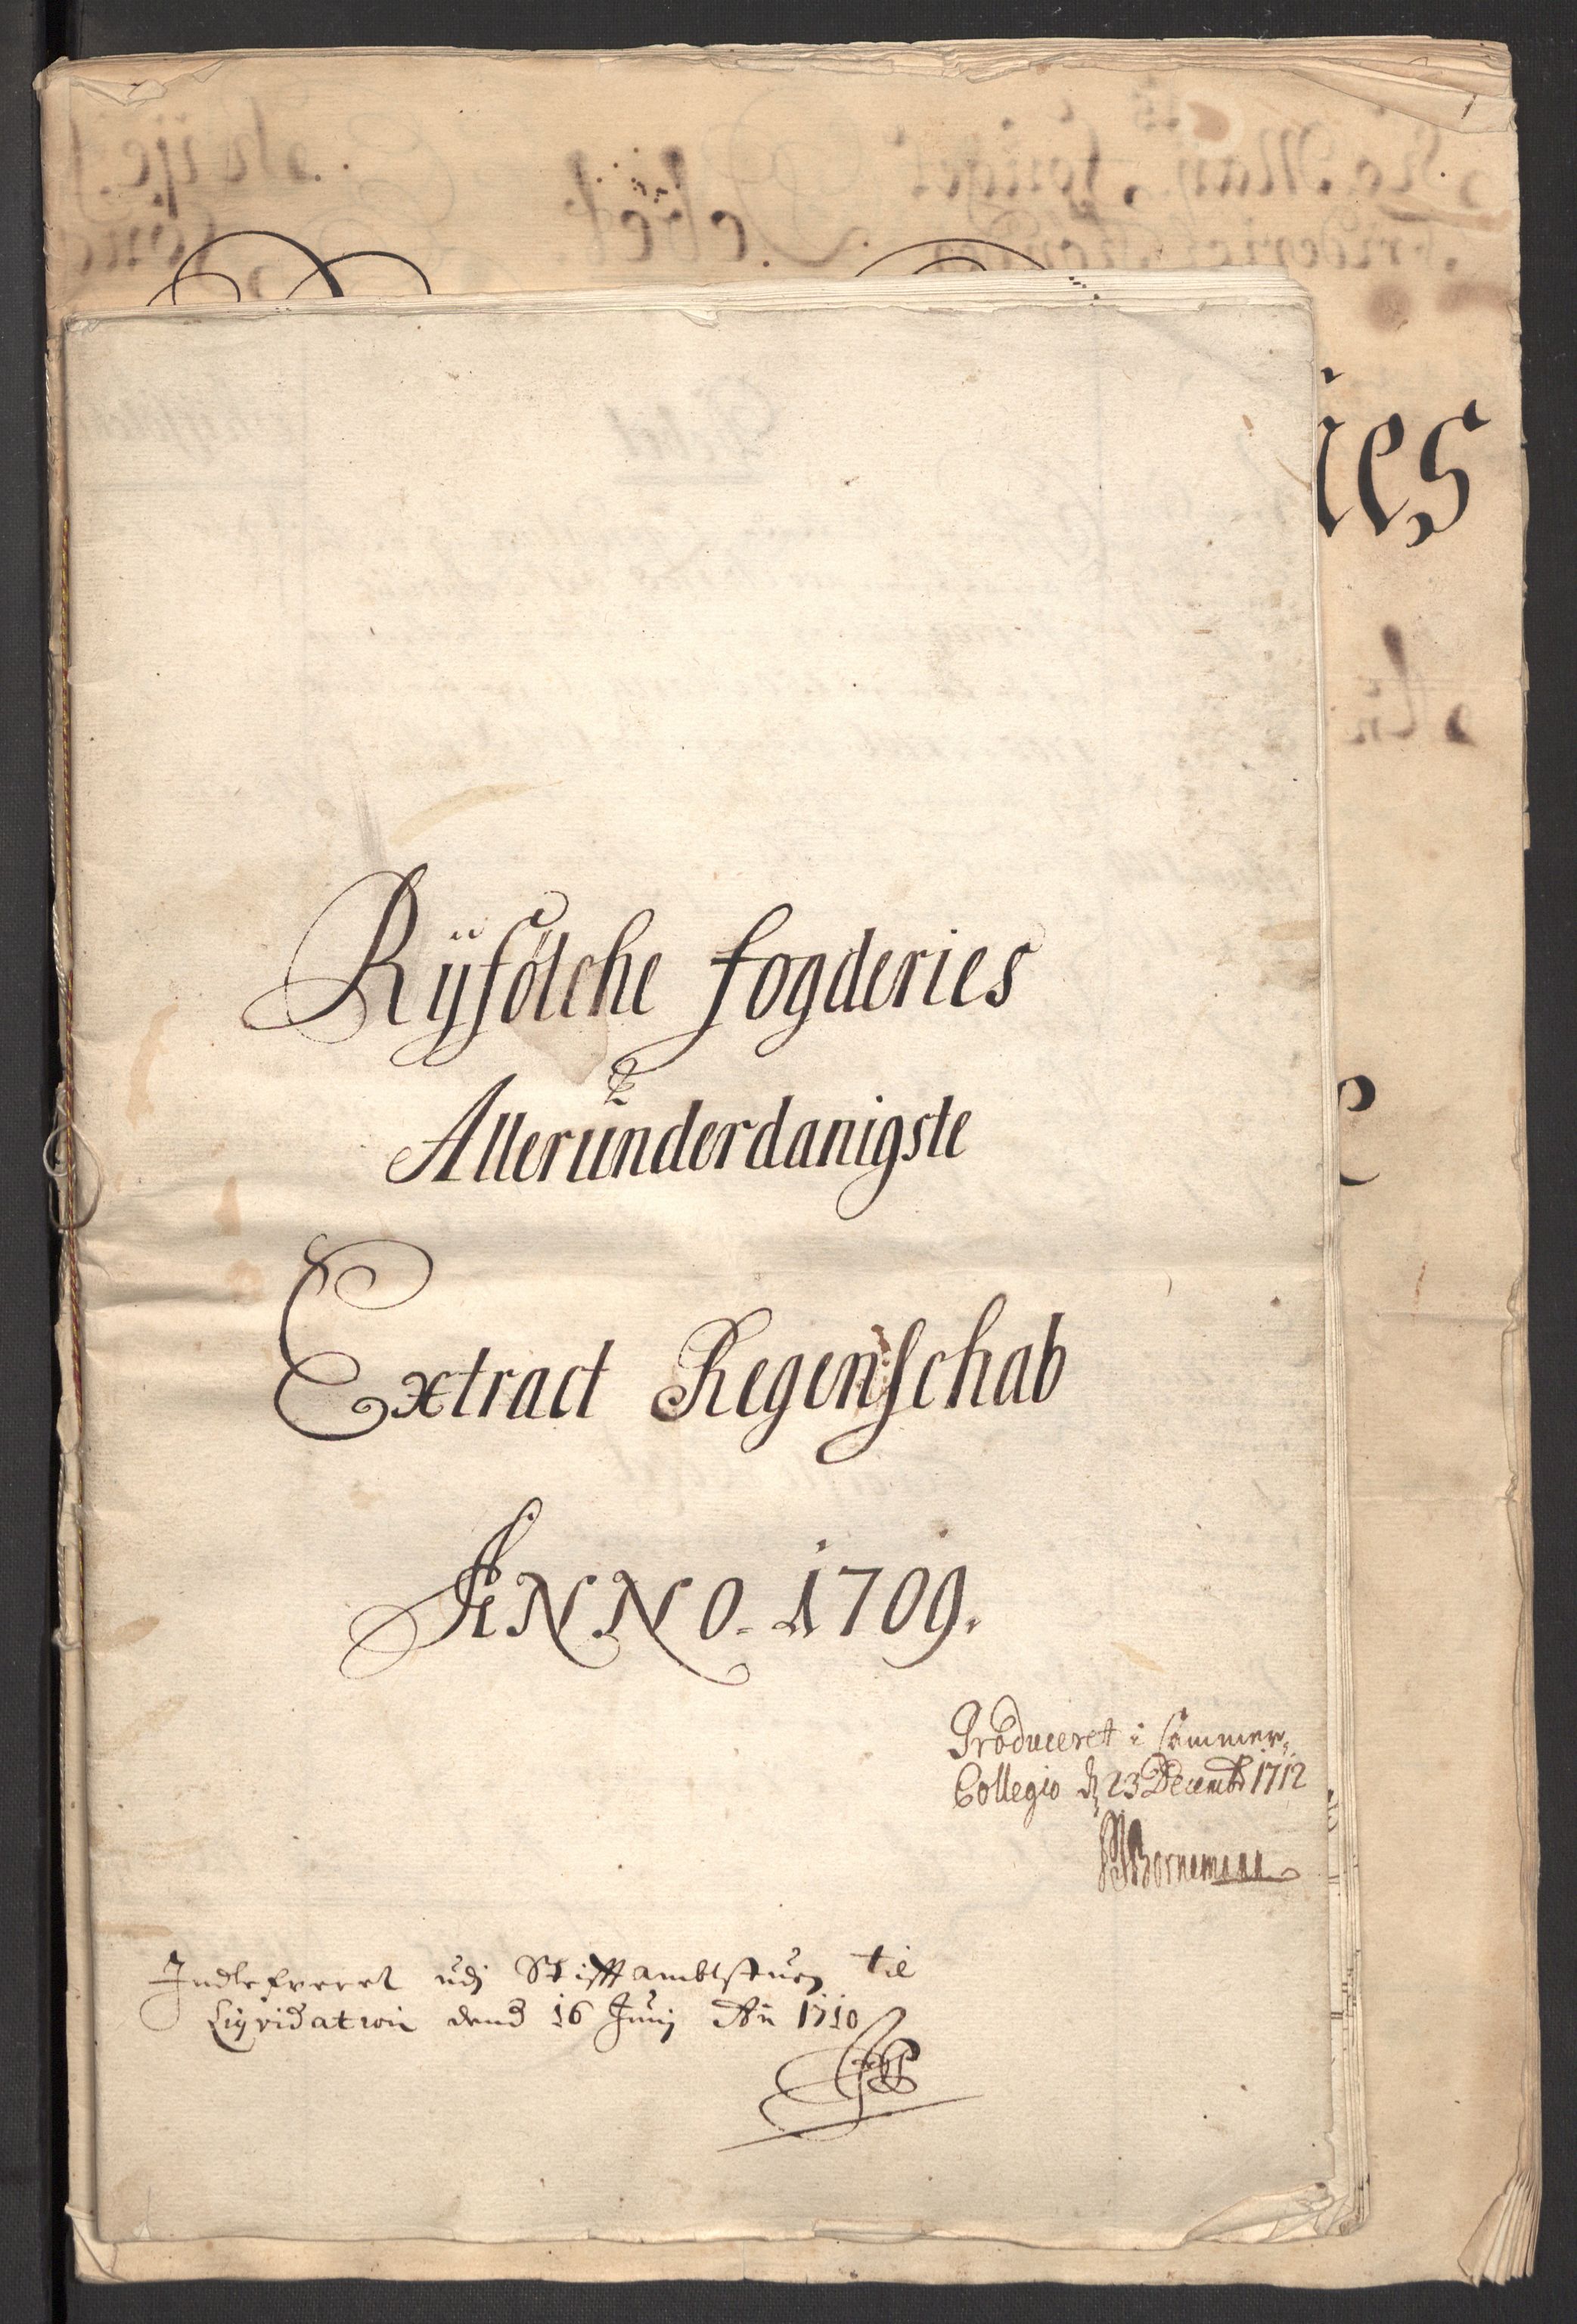 ies
Rÿfölche fogderies
Alleründerdanigste
Extract Regenschab
ANNO. 1709.
Produceret i Cammer
Collegio d 23 Decembr 1712
Bornemann
Indlefveret udj Stifftambtstuen til
Liqvidation dend 16 Junij An 1710